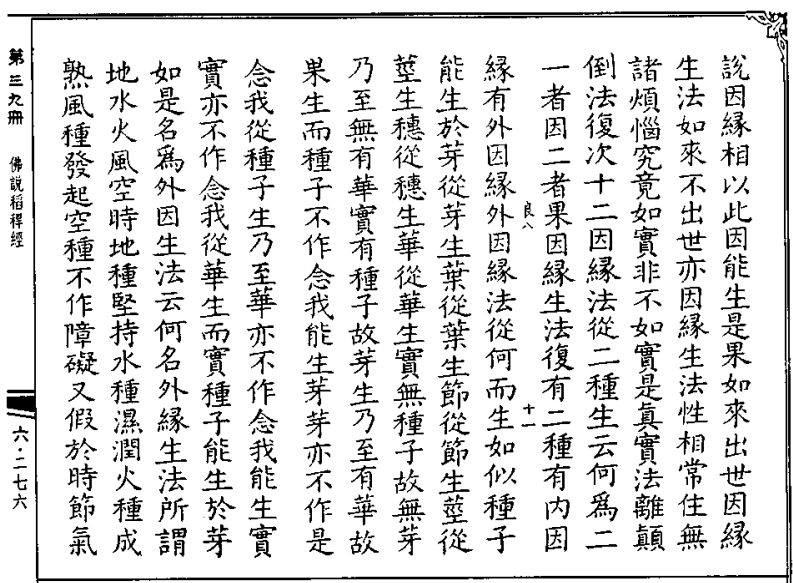 說因緣相以此因能生是果如來出世因緣
生法如來不出世亦因緣生法性相常住無
諸煩惱究竟如實非不如實是真實法離顛
倒法復次十二因緣法從二種生云何為二
一者因二者果因緣生法復有二種有內因
良八
十一
緣有外因緣外因緣法從何而生如似種子
能生於芽從芽生葉從葉生節從節生莖從
莖生穗從穗生華從華生實無種子故無芽
乃至無有華實有種子故芽生乃至有華故
果生而種子不作念我能生芽芽亦不作是
念我從種子生乃至華亦不作念我能生實
實亦不作念我從華生而實種子能生於芽
如是名為外因生法云何名外緣生法所謂
地水火風空時地種堅持水種濕潤火種成
熟風種發起空種不作障礙又假於時節氣
第三九冊
佛說稻稈經
六·二七六